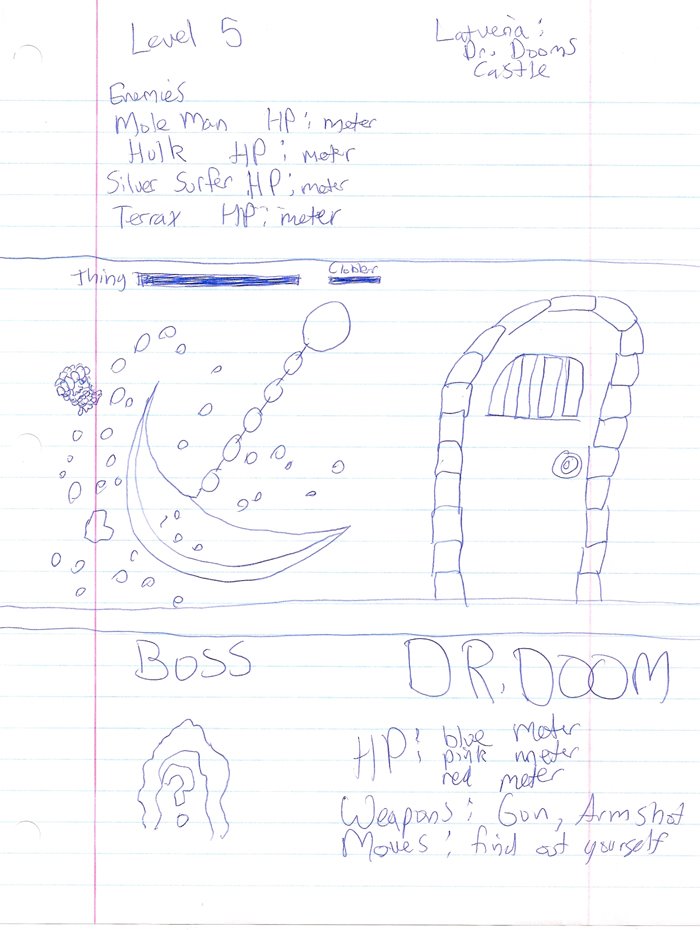 Level 5
Latveria:
Dr. Dooms
Castle
Enemies
Mole Man HP: meter
Hulk HP: meter
Silver Surfer HP: meter
Terrax HP: meter
Thing
Clobber
BOSS
DR. DOOM
?
HP: blue meter
pink meter
red meter
Weapons: Gun, Armshot
Moves: find out yourself